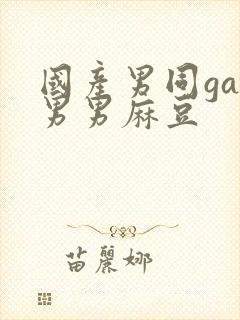 國產男同ga
男男麻豆
苗麗娜